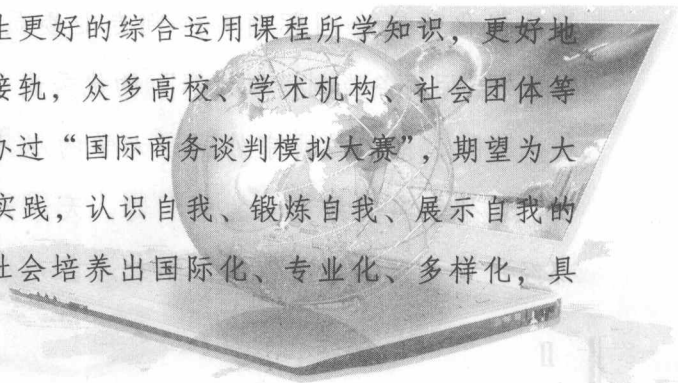 生更好的综合运用课程所学知识，更好地
接轨，众多高校、学术机构、社会团体等
办过“国际商务谈判模拟大赛”，期望为大
实践，认识自我、锻炼自我、展示自我的
社会培养出国际化、专业化、多样化，具